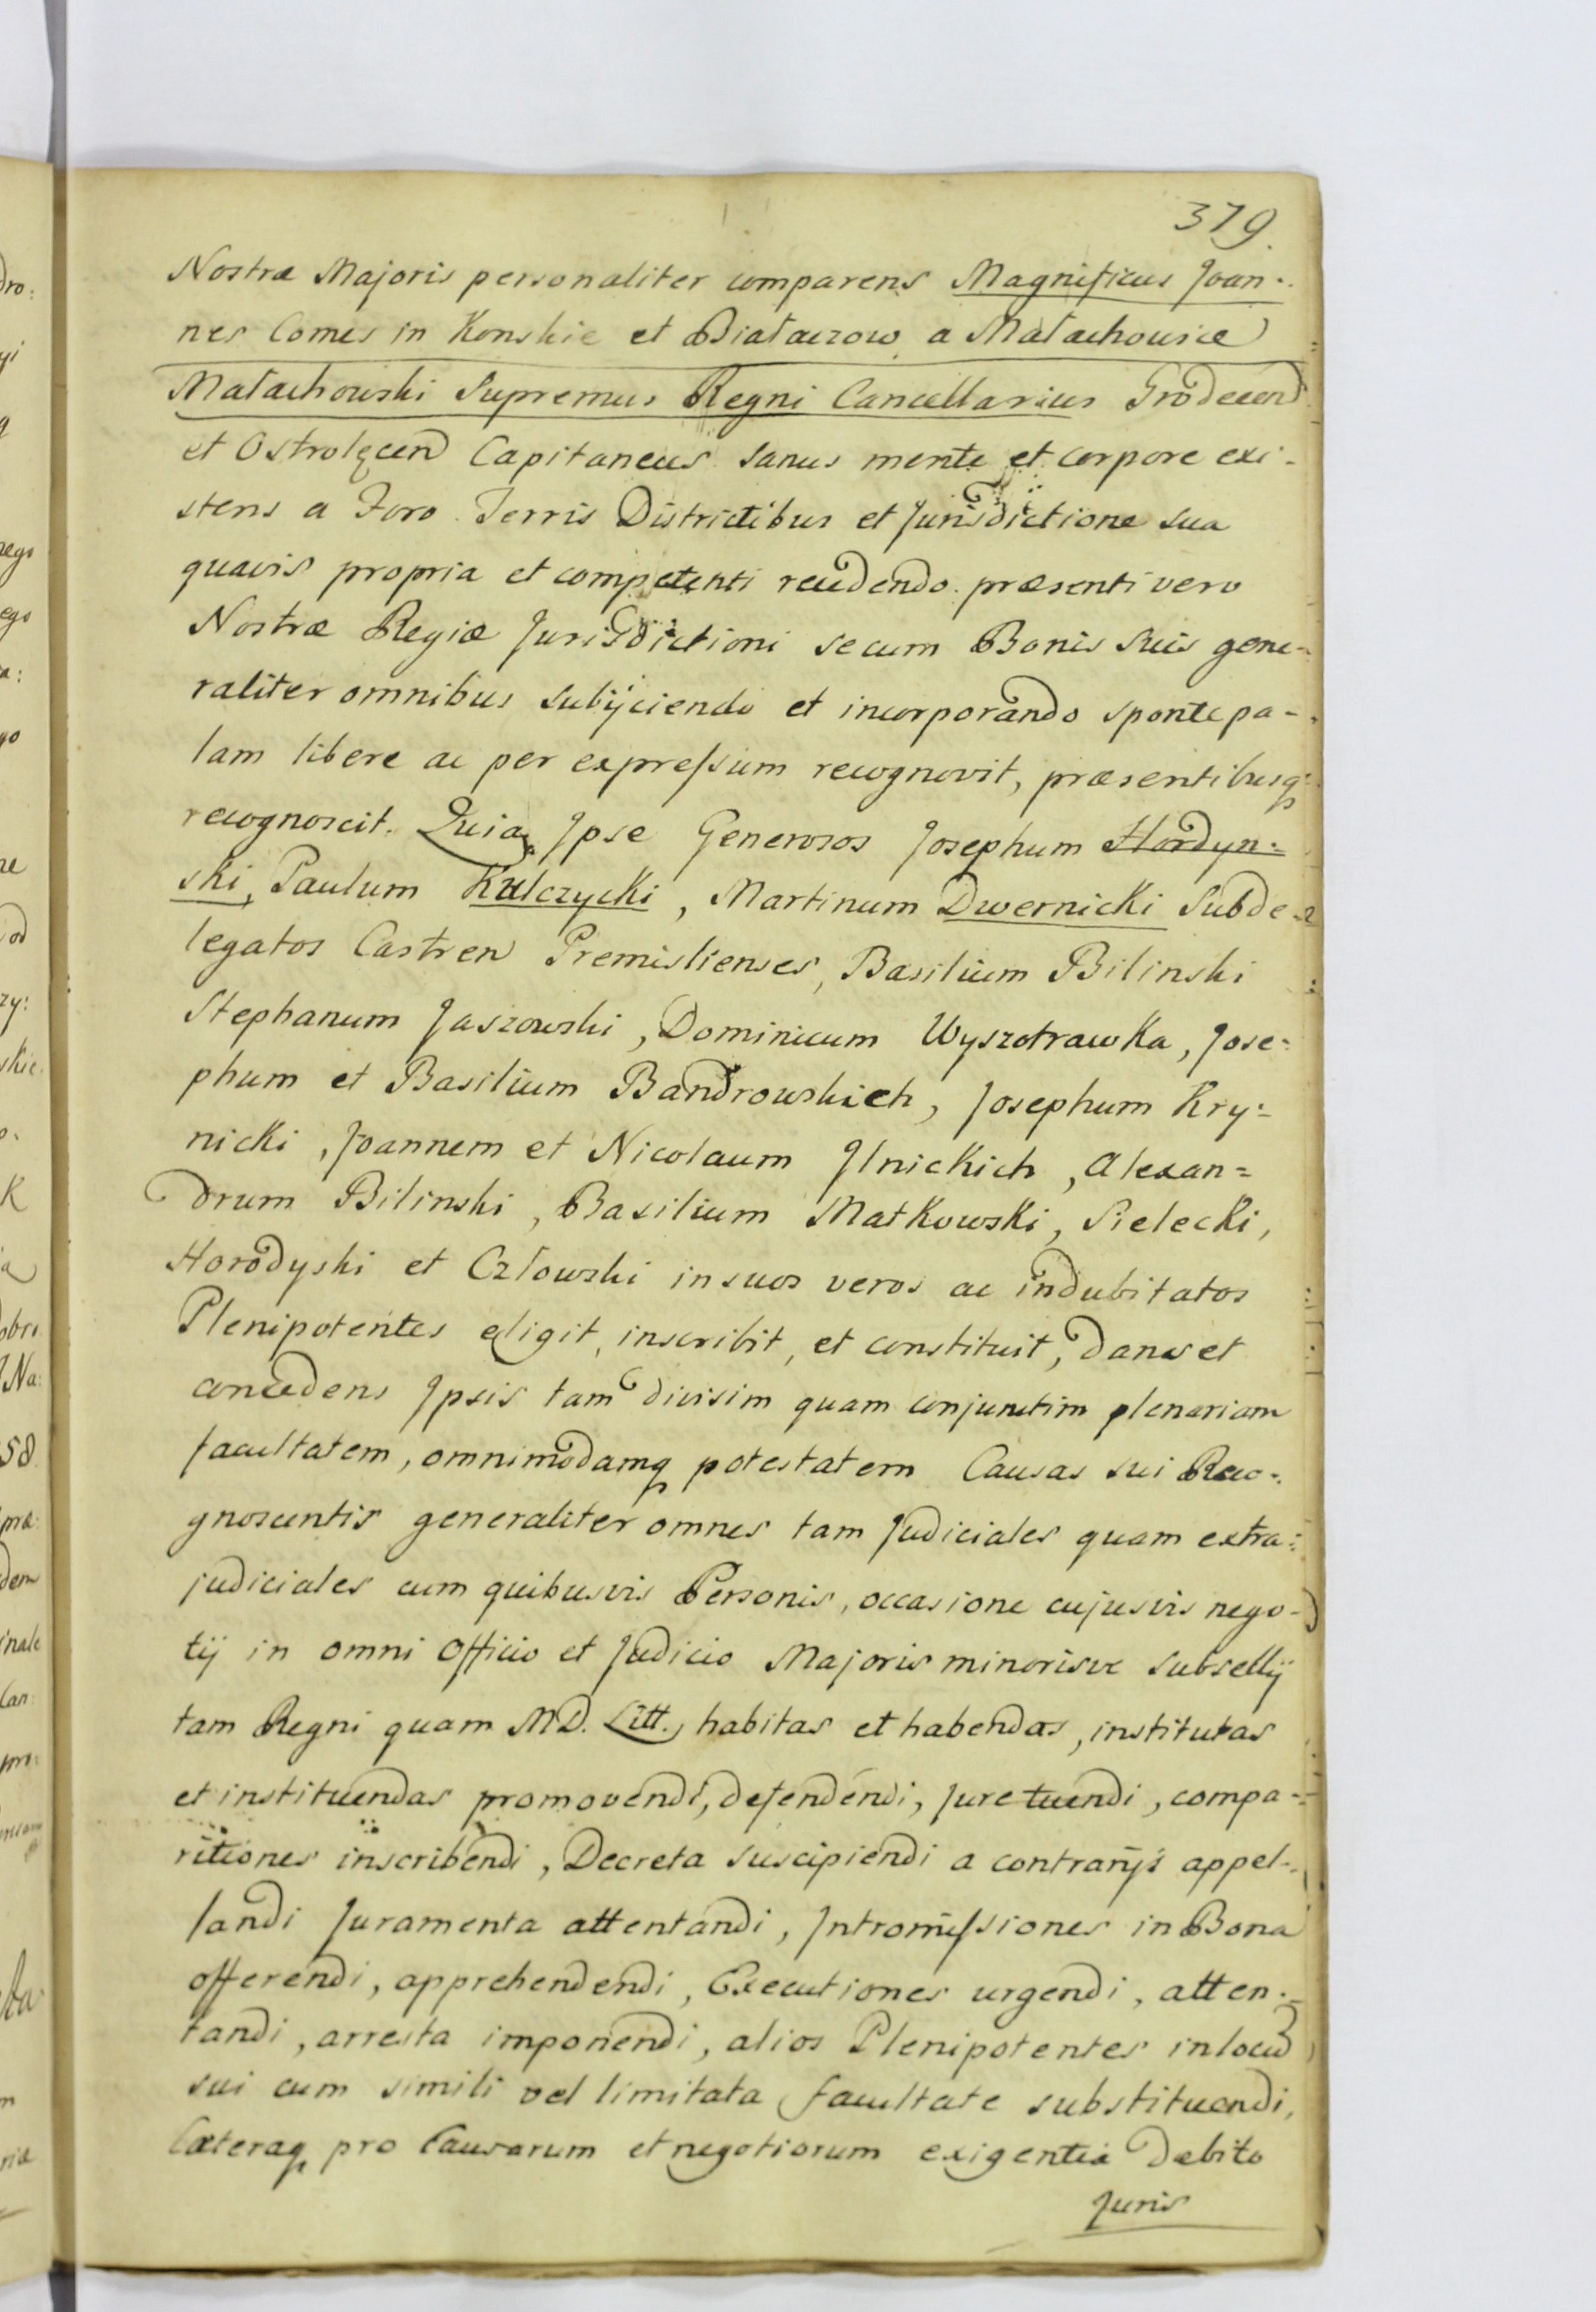 379.
Nostræ Majoris personaliter comparens Magnificus Joan-
nes Comes in Konskie et Białaczow a Małachowice
Małachowski Supremus Regni Cancellarius Grodecen
et Ostrolęcen Capitaneus sanus mente et corpore exi-
stens a Foro Terris Districtibus et Jurisdictione sua
quavis propria et competenti recedendo præsenti vero
Nostræ Regiæ Jurisdictioni se cum Bonis suis gene-
raliter omnibus subijciendo et incorporando sponte pa-
lam libere ac per expressum recognovit, præsentibusq
recognoscit. Quia Jpse Generosos Josephum Hordyn-
ski, Paulum Kulczycki, Martinum Dwernicki Subde-
legatos Castren Premislienses, Basilium Bilinski
Stephanum Jaszowski, Dominicum Wyszotrawka, Jose-
phum et Basilium Bandrowskich, Josephum Kry-
nicki, Joannem et Nicolaum Jlnickich, Alexan-
drum Bilinski, Basilium Matkowski, Sielecki,
Horodyski et Człowski in suos veros ac indubitatos
Plenipotentes eligit, inscribit, et constituit, dans et
concedens Jpsis tam divisim quam conjunctim plenariam
facultatem, omnimodamq potestatem Causas sui Reco-
gnoscentis generaliter omnes tam Judiciales quam extra-
judiciales cum quibusvis Personis, occasione cujusvis nego-
tij in omni Officio et Judicio Majoris minorisve subsellij
tam Regni quam M.D. Litt., habitas et habendas, institutas
et instituendas promovendi, defendendi, jure tuendi, compa-
ritiones inscribendi, Decreta suscipiendi a contrarijs appel-
landi Juramenta attentandi, Jntromissiones in Bona
offerendi, apprehendendi, Executiones urgendi, atten-
tandi, arresta imponendi, alios Plenipotentes in locu
sui cum simili vel limitata facultate substituendi,
Cæteraq pro Causarum et negotiorum exigentia debito
Juris